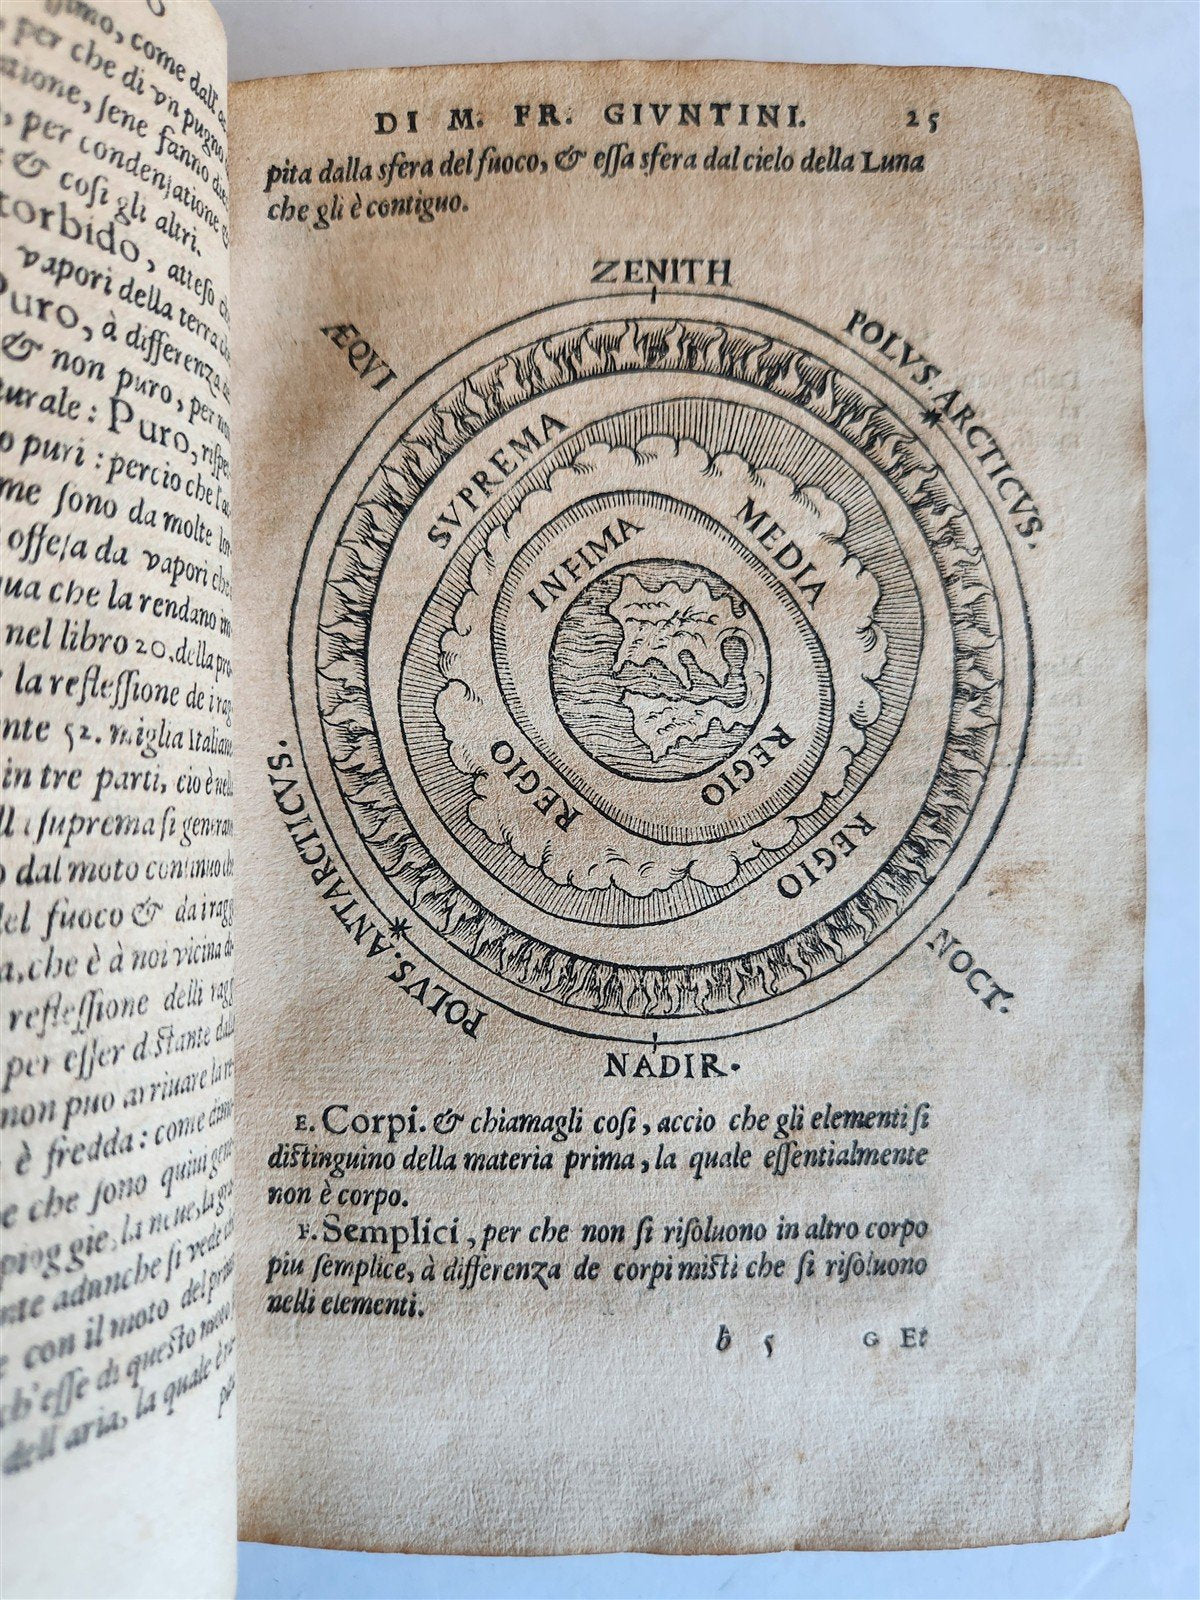 per che di vn pugno
atione, sene fanno diec
, per condensatione &
& cosi gli altri.
torbido, atteso che
vapori della terra
Puro, à differenza
& non puro, per non
turale: Puro, rispe
o puri: percio che l'ac
me sono da molte
offesa da vapori che
qua che la rendano im
nel libro 20. della pro
la reflessione de i rag
nte 52. miglia Italiane
in tre parti, cio è nella
suprema si generan
o dal moto continuo che
del fuoco & da i ragg
a, che è à noi vicina
reflessione delli ragg
per esser distante dalla
non puo arriuare la re
è fredda: come
e che sono quiui gene
piog gie, la neue, la gra
nte adunche si vede
e con il moto del
ch'esse di questo moto
dell aria, la quale è
DI M. FR. GIVNTINI. 25
pita dalla sfera del fuoco, & essa sfera dal cielo della Luna
che gli è contiguo.
ZENITH
ÆQVI
POLVS. ARCTICVS.
SVPREMA
MEDIA
INFIMA
REGIO
REGIO
REGIO
POLVS. ANTARCTICVS.
NOCT.
NADIR.
E. Corpi. & chiamagli cosi, accio che gli elementi si
distinguino della materia prima, la quale essentialmente
non è corpo.
F. Semplici, per che non si risoluono in altro corpo
piu semplice, à differenza de corpi misti che si risoluono
nelli elementi.
b 5 G Et